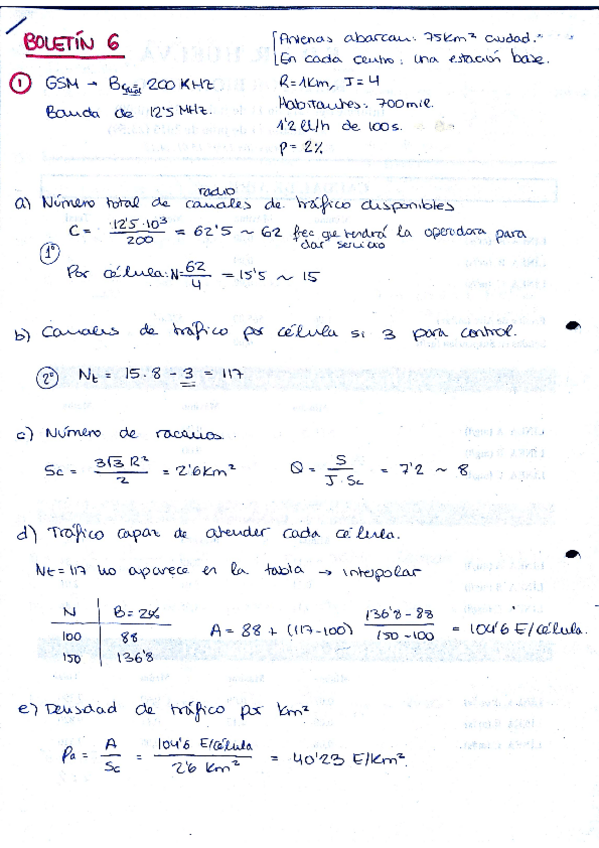 BOLETÍN 6
[Antenas abarcan: 75Km² ciudad.
[En cada centro: una estación base.
① GSM → B 200 KHz
R=1Km, J=4
Banda de 12'5 MHz.
Habitantes: 700mil.
1'2 ll/h de 100s.
p=2%
a) Número total de canales radio de tráfico disponibles
C = 12'5·10³ / 200 = 62'5 ~ 62 frec que tendrá la operadora para dar servicio
1º
Por célula: N = 62 / 4 = 15'5 ~ 15
b) Canales de tráfico por célula si 3 para control.
2º Nt = 15·8 - 3 = 117
c) Número de racimos.
Sc = 3√3 R² / 2 = 2'6Km² Q = S / J·Sc = 7'2 ~ 8
d) Tráfico capaz de atender cada célula.
Nt=117 no aparece en la tabla → interpolar
N | B=2%
100 | 88
150 | 136'8
A = 88 + (117-100) 136'8 - 88 / 150 - 100 = 104'6 E/célula.
e) Densidad de tráfico por km²
ρa = A / Sc = 104'6 E/célula / 2'6 Km² = 40'23 E/Km².